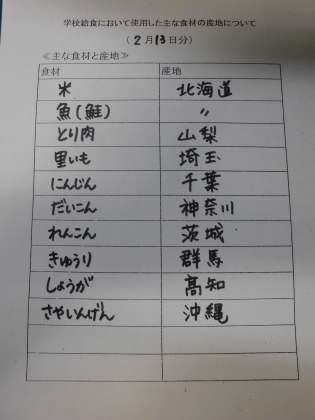 学校給食において使用した主な食材の産地について
(2月13日分)
≪主な食材と産地≫
食材 産地
米 北海道
魚(鮭) 〃
とり肉 山梨
里いも 埼玉
にんじん 千葉
だいこん 神奈川
れんこん 茨城
きゅうり 群馬
しょうが 高知
さやいんげん 沖縄